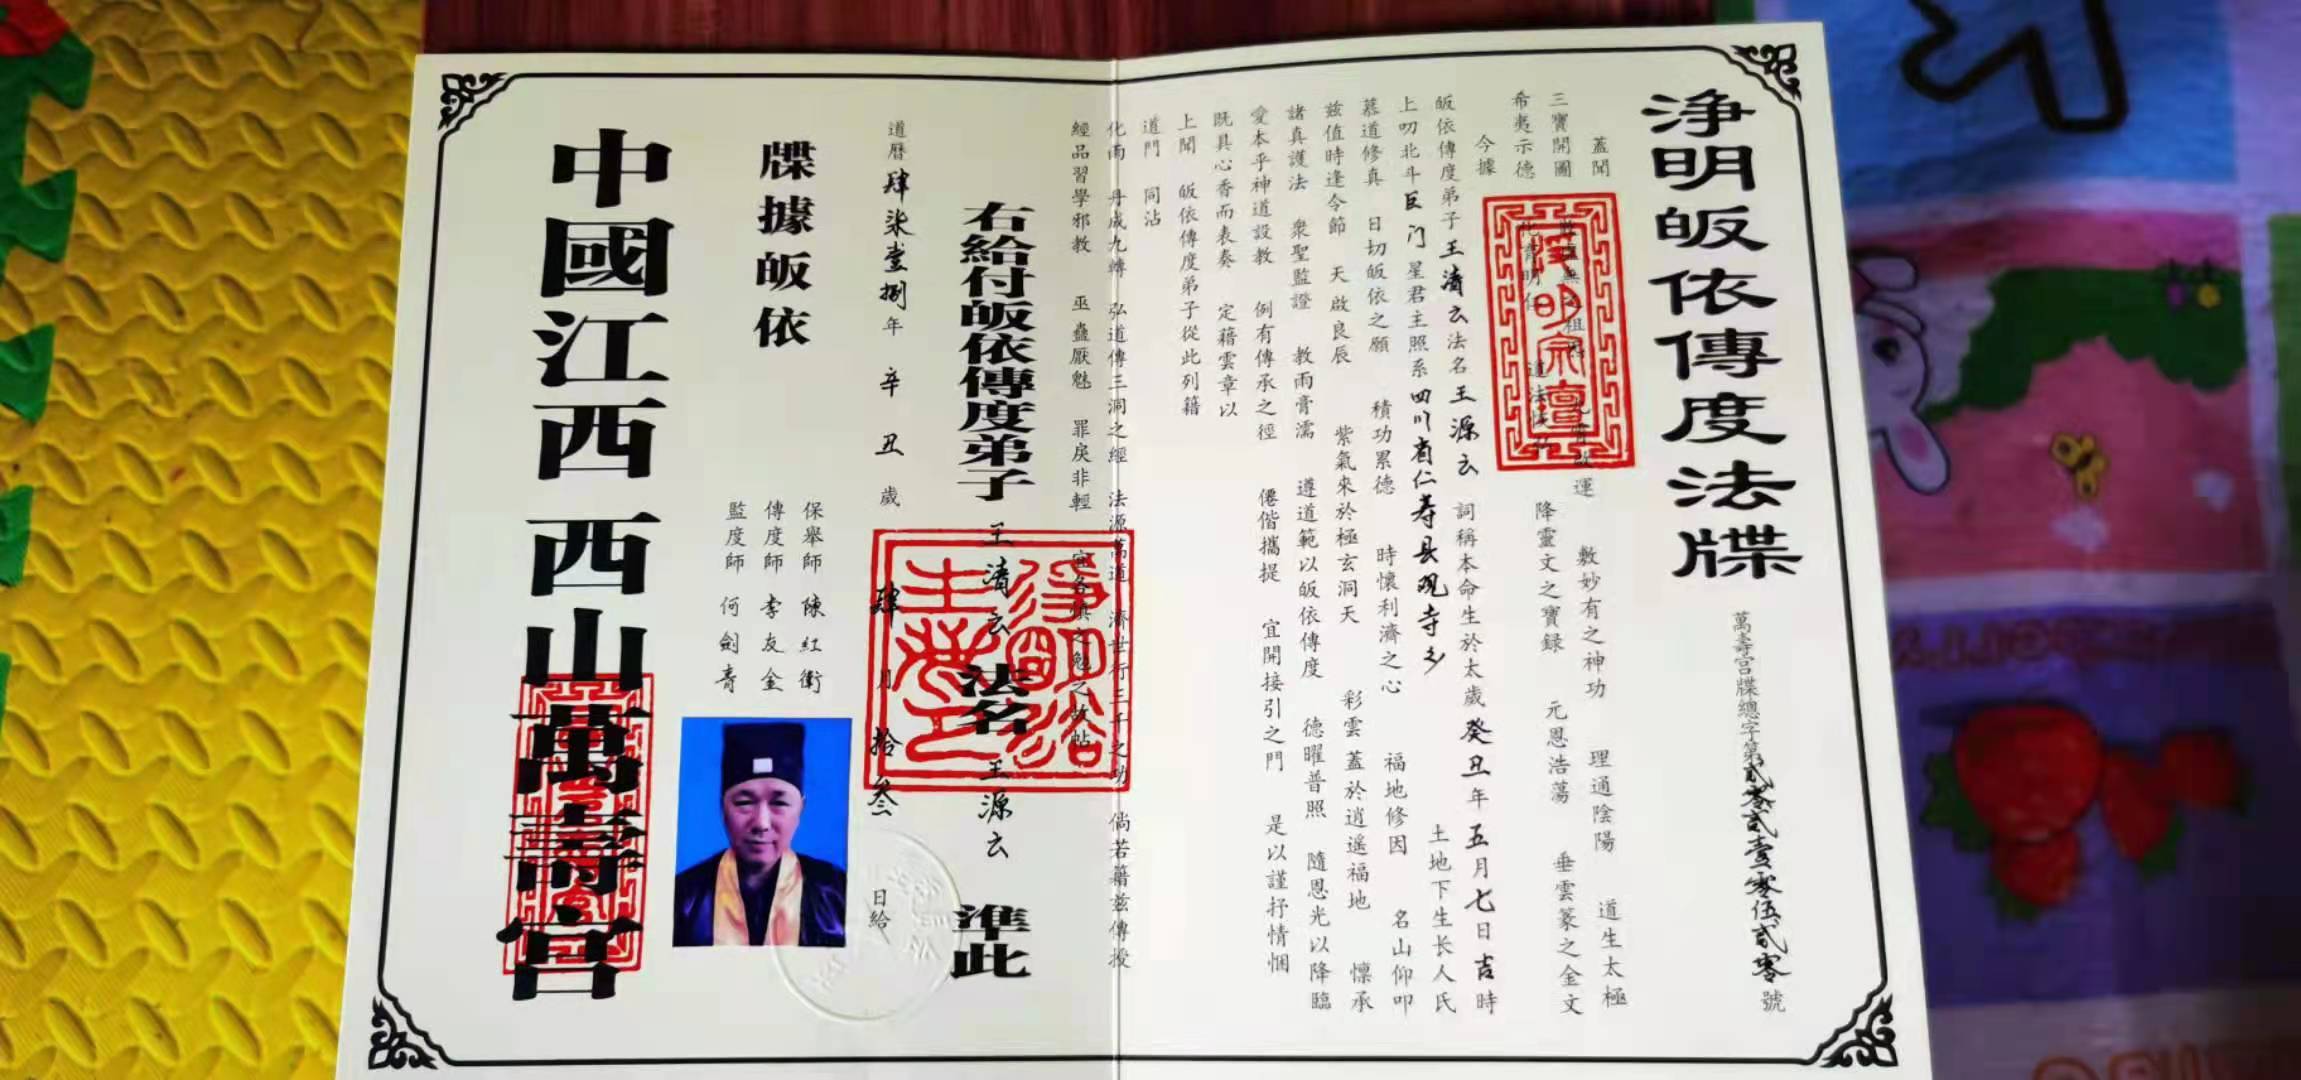 淨明皈依傳度法牒
萬壽宮牒總字第貳零貳壹零伍貳零號
蓋聞
三寶開圖 九霄啟運 敷妙有之神功 理通陰陽 道生太極
希夷示德 化育明仁 道法恢弘 降靈文之寶録 元恩浩蕩 垂雲篆之金文
今據
皈依傳度弟子王清云法名王源云 詞稱本命生於太歲癸丑年五月七日吉時
上叨北斗巨门星君主照系四川省仁寿县观寺乡 土地下生长人氏
慕道修真 日切皈依之願 積功累德 時懷利濟之心 福地修因 名山仰叩
兹值時逢令節 天啟良辰 紫氣來於極玄洞天 彩雲蓋於逍遥福地 懔承
諸真護法 衆聖監證 教雨膏濡 遵道範以皈依傳度 德曜普照 隨恩光以降臨
愛本乎神道設教 例有傳承之徑 僊偕攜提 宜開接引之門 是以謹抒情悃
既具心香而表奏 定藉雲章以
上聞 皈依傳度弟子從此列籍
道門 同沾
化雨 丹成九轉 弘道傳三洞之經 法源萬道 濟世行三千之功 倘若籍兹傳授
經品習學邪教 巫蠱厭魅 罪戾非輕 宜各慎之勉之故帖
右給付皈依傳度弟子 王清云 法名 王源云 準此
道曆肆柒壹捌年 辛丑歲 肆月拾叁日給
保舉師 陳紅衛
傳度師 李友金
監度師 何劍青
牒據皈依
中國江西西山萬壽宮
淨明宗壇